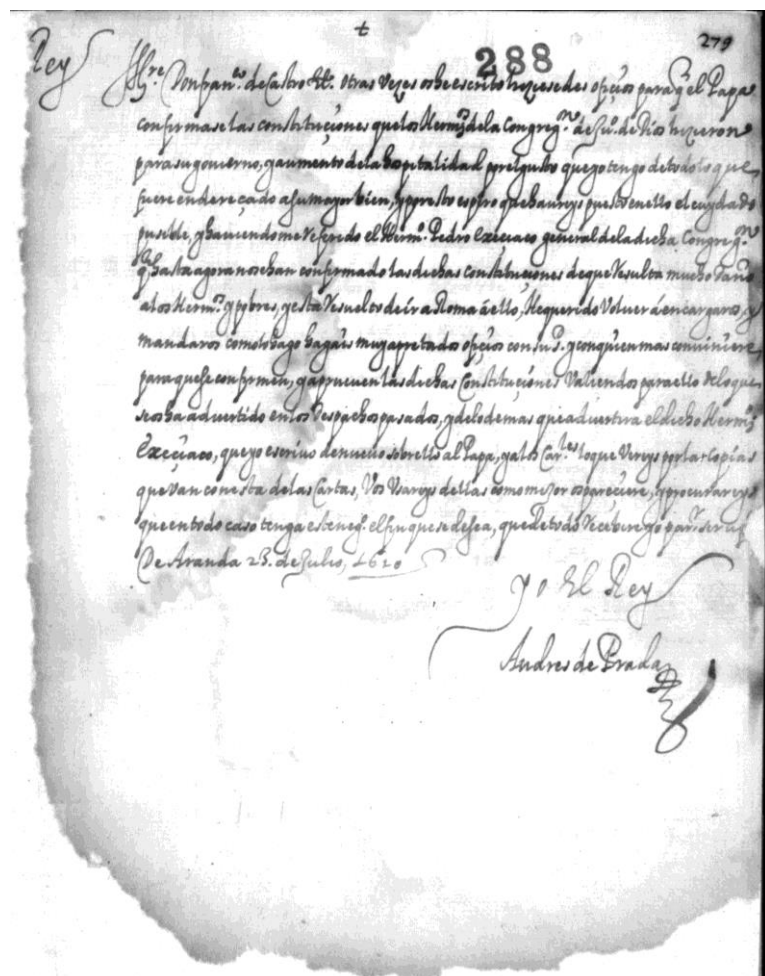 +
279
288
Rey
Illre Don franco. de Castro &c. Otras vezes os he escrito hiziesedes ofiçios para q̃ el Papa
confirmase las constituçiones que los Hermos de la Congregon. de Ju.o de Dios hizieron
para su govierno, y aumento de la hospitalidad por el gusto que yo tengo de todo lo que
fuere endereçado a su mayor bien, y presto espero que haureys puesto en ello el cuydado
pusible, y haviendome referido el Hermo. Pedro Exeçiaco general de la dicha Congregon
q̃ hasta agora no se han confirmado las dichas Constituçiones de que resulta mucho daño
a los Hermos. y pobres, y esta resuelto de ir a Roma á ello, He querido volver á encargaros, y
mandaros como lo hago hagais muy apretados ofiçios con su Sd. y con quien mas conviniere,
para que se confirmen, y aprueuen las dichas Constituçiones valiendos para ello de lo que
se os ha advertido en los despachos pasados, y de lo demas que advertira el dicho Hermo.
Exeçiaco, que yo escrivo de nuevo sobrello al Papa, y a los Carles lo que vereys por las copias
que van con esta de las Cartas, Vos usareys dellas como mejor os pareçiere, y procurareys
que en todo caso tenga este nego. el fin que se desea, que de todo recibire yo parr. servio
De Aranda 25. de Julio, 1610
Yo El Rey
Andres de Prada